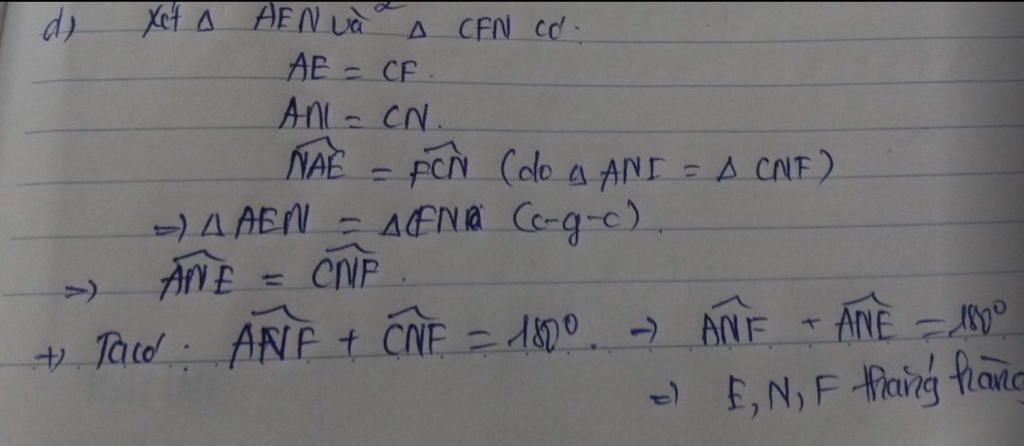 d) Xét Δ AEN và Δ CFN có:
AE = CF.
AN = CN.
\widehat{NAE} = \widehat{FCN} (do Δ ANE = Δ CNF)
=> Δ AEN = Δ CFN (c-g-c).
=> \widehat{ANE} = \widehat{CNF}.
+) Ta có: \widehat{ANF} + \widehat{CNF} = 180°. -> \widehat{ANF} + \widehat{ANE} = 180°
=> E, N, F thẳng hàng